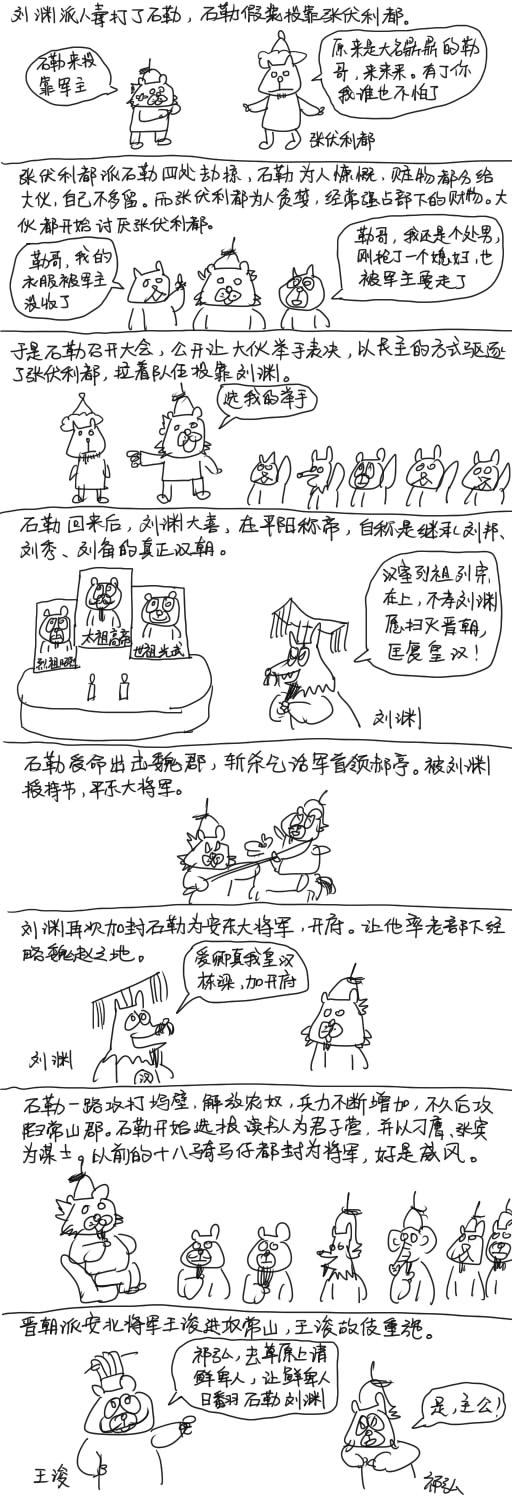 刘渊派人毒打了石勒，石勒假装投靠张伏利都。
石勒来投
靠军主
原来是大名鼎鼎的勒
哥，来来来。有了你
我谁也不怕了
张伏利都
张伏利都派石勒四处劫掠，石勒为人慷慨，赃物都分给
大伙，自己不多留。而张伏利都为人贪婪，经常强占部下的财物。大
伙都开始讨厌张伏利都。
勒哥，我的
衣服被军主
没收了
勒哥，我还是个处男，
刚抢了一个媳妇，也
被军主要走了
于是石勒召开大会，公开让大伙举手表决，以民主的方式驱逐
了张伏利都，拉着队伍投靠刘渊。
选我的举手
石勒回来后，刘渊大喜，在平阳称帝，自称是继承刘邦、
刘秀、刘备的真正汉朝。
烈祖昭烈
太祖高帝
世祖光武
汉室列祖列宗
在上，不孝刘渊
愿扫灭晋朝，
匡复皇汉！
刘渊
石勒受命出击魏郡，斩杀乞活军首领郝亭。被刘渊
授持节，平东大将军。
刘渊再次加封石勒为安东大将军，开府。让他率老部下经
略魏赵之地。
爱卿真我皇汉
栋梁，加开府
刘渊
汉
石勒一路攻打坞壁，解放农奴，兵力不断增加，不久后攻
陷常山郡。石勒开始选拔读书人为君子营，并以刁膺、张宾
为谋士。以前的十八骑马仔都封为将军，好是威风。
晋朝派安北将军王浚进攻常山，王浚故伎重施。
祁弘，去草原上请
鲜卑人，让鲜卑人
日翻羽石勒刘渊
是，主公！
王浚
祁弘